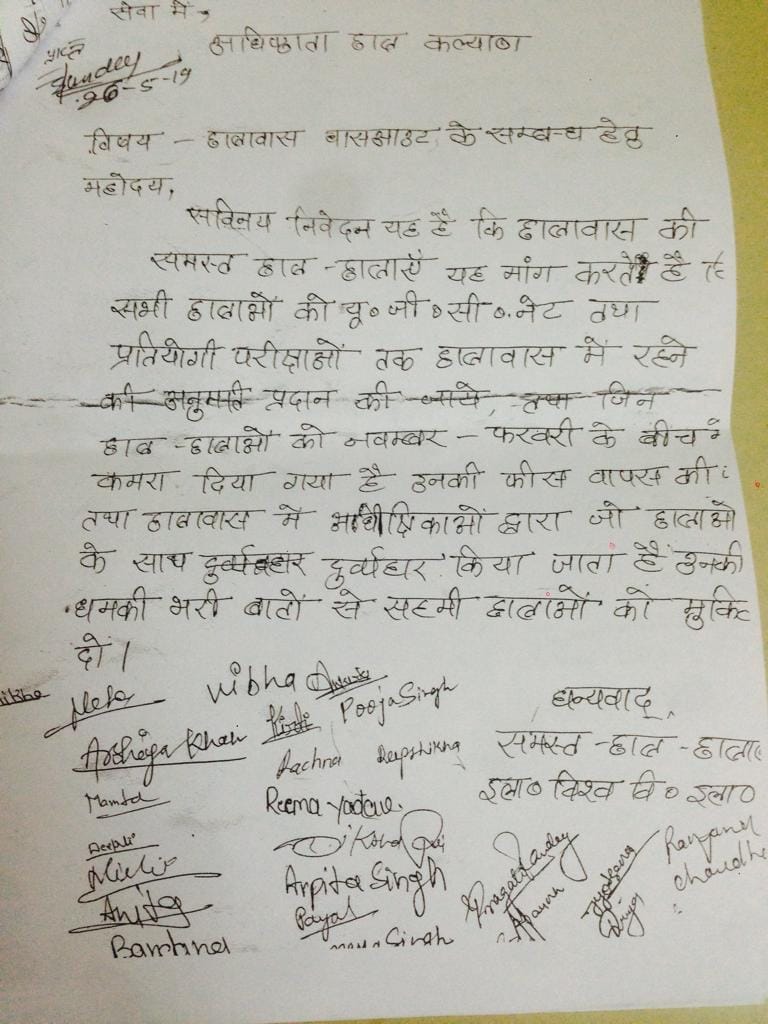 सेवा में,
अधिष्ठाता छात्र कल्याण
प्राप्त
Pandey
26-5-19
विषय - छात्रावास वासआउट के सम्बन्ध हेतु
महोदय,
सविनय निवेदन यह है कि छात्रावास की
समस्त छात्र-छात्राएँ यह मांग करते है कि
सभी छात्राओं को यू०जी०सी०.नेट तथा
प्रतियोगी परीक्षाओं तक छात्रावास में रहने
की अनुमति प्रदान की जाये, तथा जिन
छात्र-छात्राओं को नवम्बर - फरवरी के बीच में
कमरा दिया गया है उनकी फीस वापस की
तथा छात्रावास में अधीक्षिकाओं द्वारा जो छात्राओं
के साथ दुर्व्यहार किया जाता है उनकी
धमकी भरी बातों से सहमी छात्राओं को मुक्ति
दो।
Neha Vibha Pooja Singh
धन्यवाद्
Arshiya Khan Rachna Deepshikha
समस्त-छात्र-छात्राएं
Mamta Reema Yadav
इला० विश्व वि० इला०
Deepali
Nidhi Arpita Singh Pragati Pandey Jyotsana Ranjana Chaudha
Anita Payal Priya
Bambina Singh